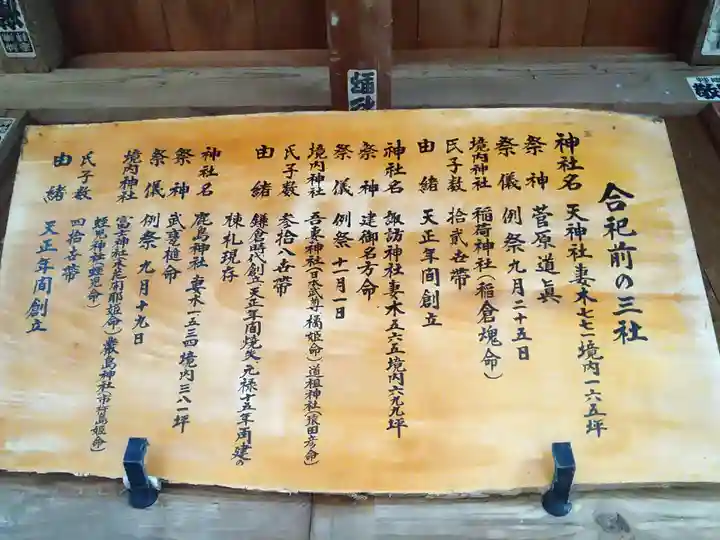 合祀前の三社
神社名 天神社妻木七七一境内一六五坪
祭神 菅原道眞
祭儀 例祭九月二十五日
境内神社 稲荷神社(稲倉魂命)
氏子数 拾貳世帯
由緒 天正年間創立
神社名 諏訪神社妻木五六五境内六九九坪
祭神 建御名方命
祭儀 例祭十一月一日
境内神社 吾妻神社(日本武尊橘姫命)道祖神社(猿田彦命)
氏子数 参拾八世帯
由緒 鎌倉時代創立天正年間焼失元禄十五年再建の
棟札現存
神社名 鹿島神社 妻木一五三四境内三八一坪
祭神 武甕槌命
祭儀 例祭 九月十九日
境内神社 富士神社(木花咲耶姫命)厳島神社(市杵島姫命)
蛭児神社(蛭児命)
氏子数 四拾世帯
由緒 天正年間創立